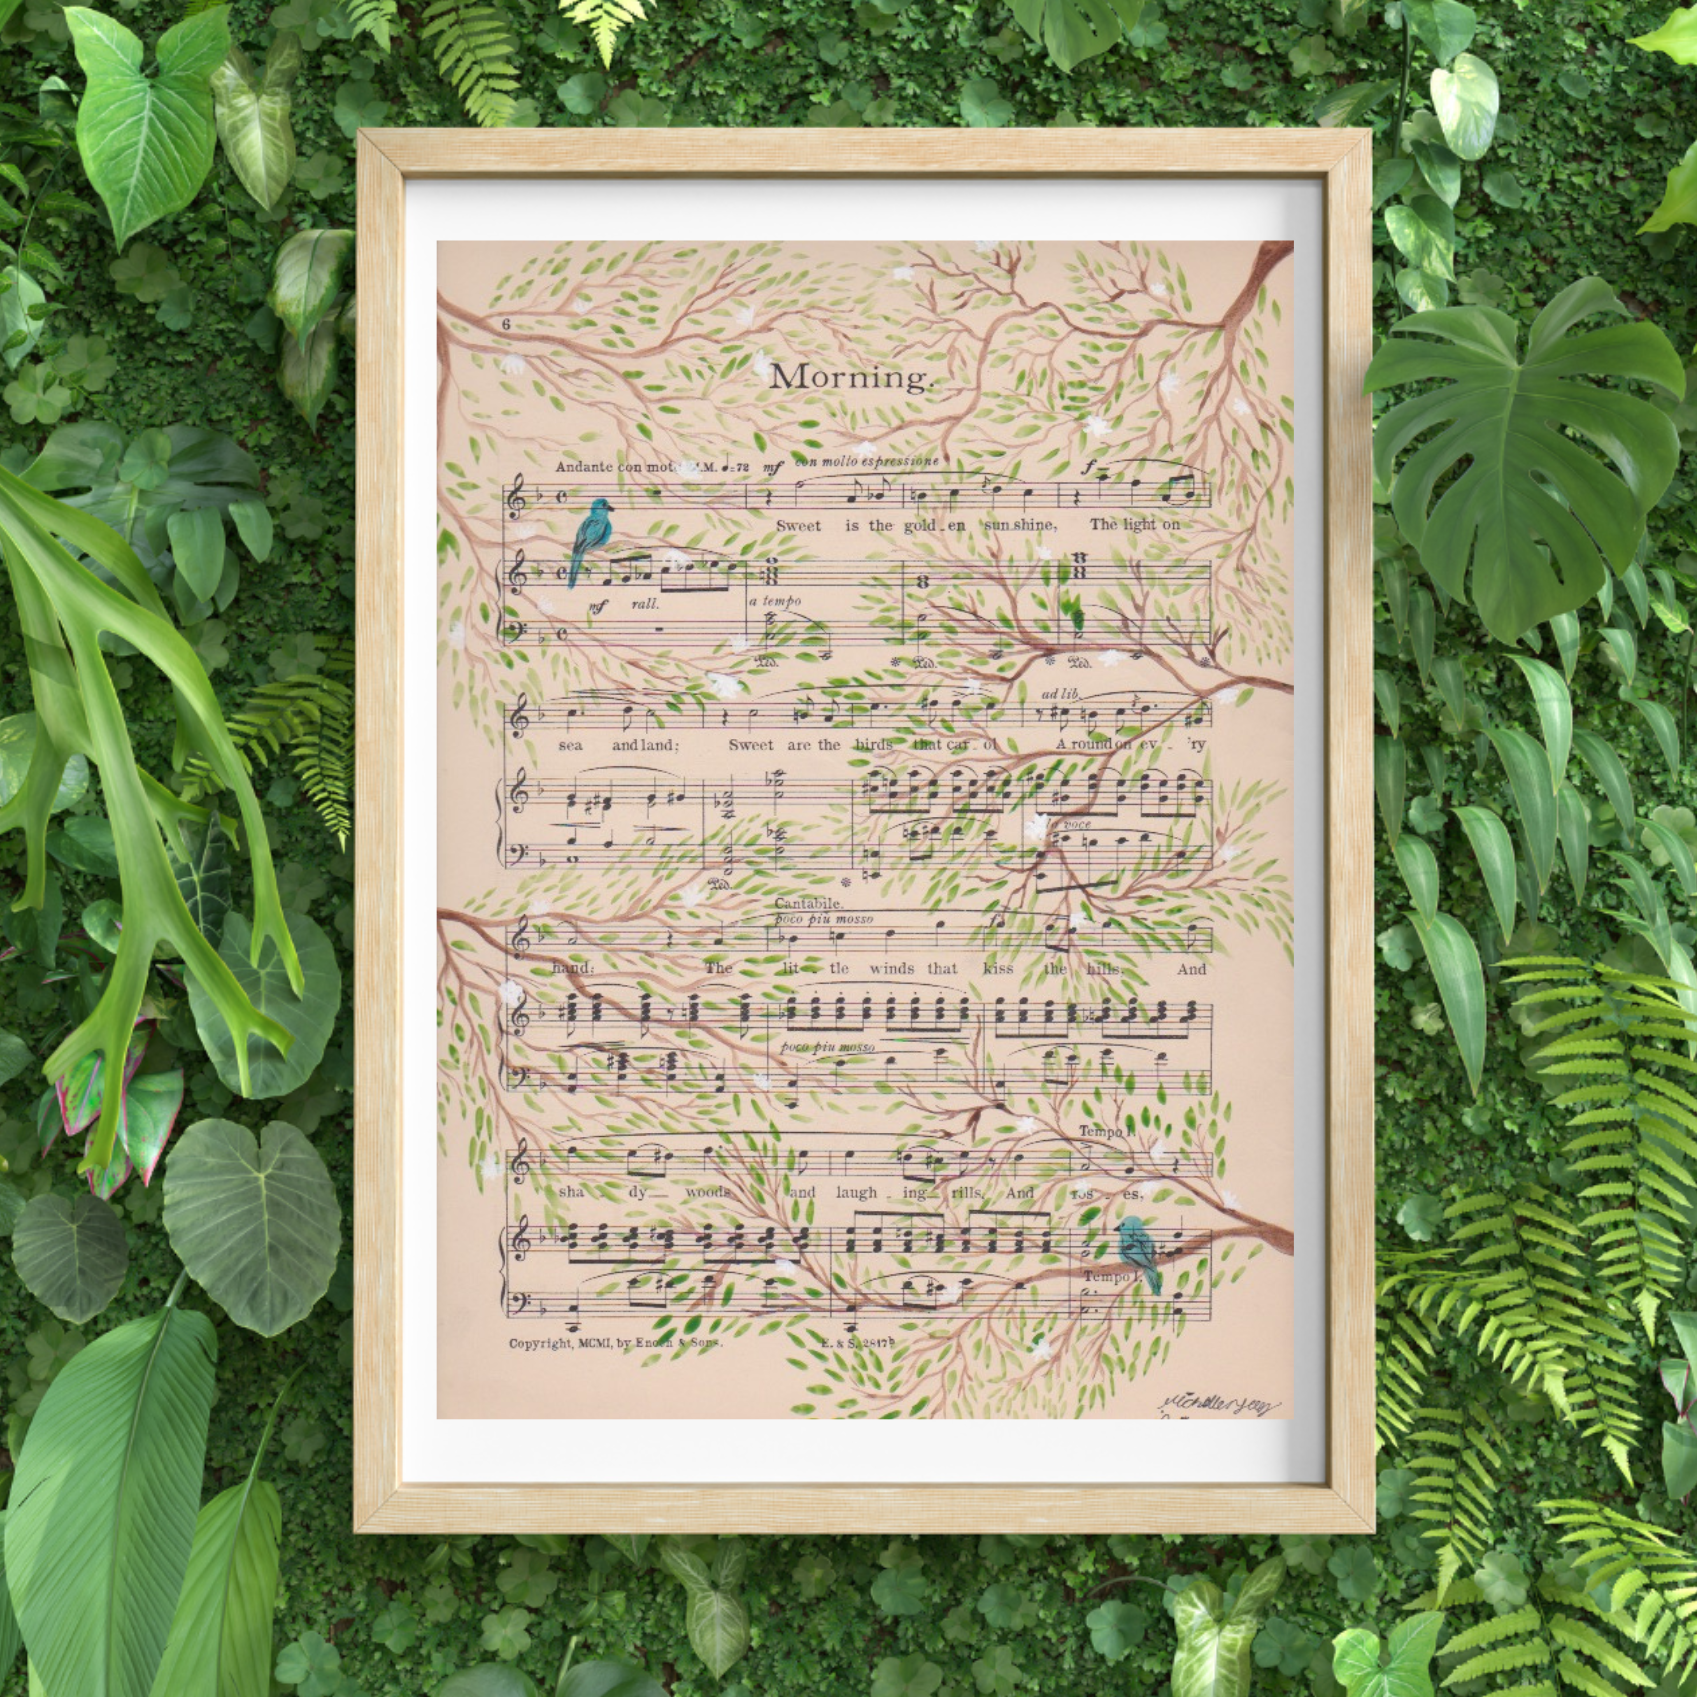 6
Morning.
Andante con mot M.M. ♩=72 mf con molto espressione f
Sweet is the gold - en sunshine, The light on
mf rall. a tempo
Ped. * Ped. * Ped. *
ad lib.
sea and land; Sweet are the birds that car - ol A round on ev - 'ry
voce
Ped. *
Cantabile.
poco più mosso
hand: The lit - tle winds that kiss the hills, And
poco più mosso
Tempo I.
sha - dy woods and laugh - ing rills, And ros - es,
Tempo I.
Copyright, MCMI, by Enoch & Sons. E. & S. 2817